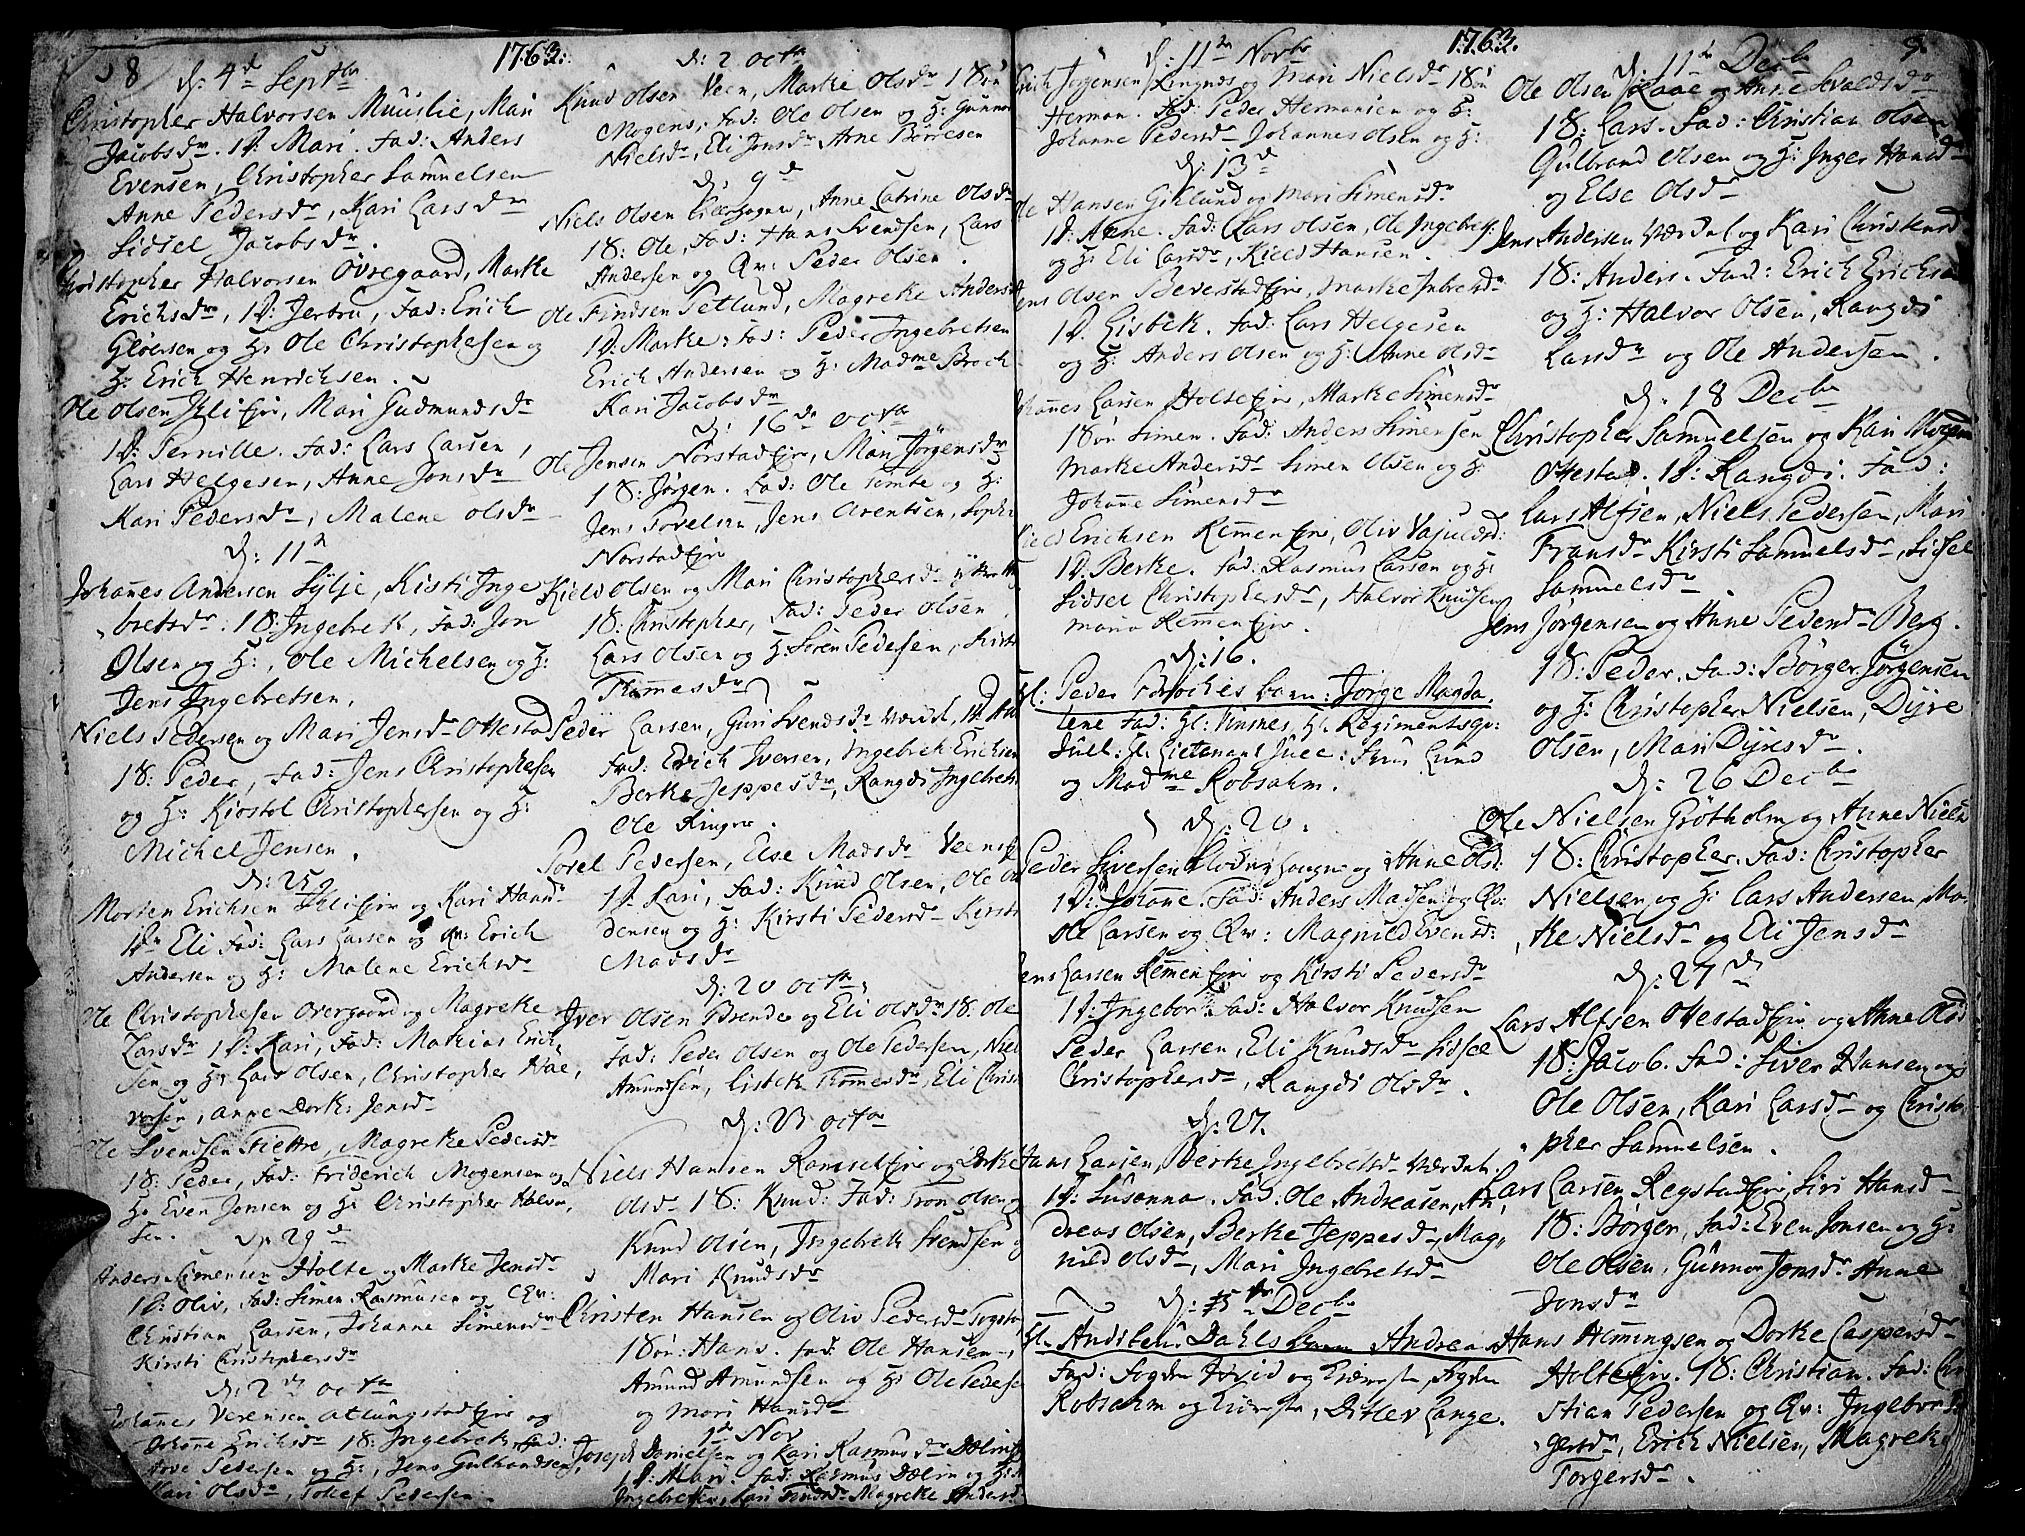 8
1763.
d: 4de Septbr
Christopher Halvorsen Muuslie, Mari
Jacobsdr. 1D: Mari. Fad: Anders
Evensen, Christopher Samuelsen
Anne Pedersdr, Kari Larsdr
Sidsel Jacobsdr.
Christopher Halvorsen Övregaard, Marke
Erichsdr, 1D: Jertru, Fad: Erich
Gloersen og H: Ole Christophersen og
H: Erich Henrichsen.
Ole Olsen Iklie, Mari Gudmundsdr
1D: Pernille. Fad: Lars Larsen,
Lars Helgesen, Anne Jonsdr
Kari Pedersdr, Malene Olsdr
d: 11te
Johanes Andersen Sylje, Kisti Inge
bretsdr: 1S: Ingebret, Fad: Jon
Olsen og H:, Ole Michelsen og H:
Jens Ingebretsen.
Niels Pedersen og Mari Jensdr Ottestad
1S: Peder, Fad: Jens Christophersen
og H: Kiostol Christophersen og H:
Michel Jensen.
d: 25
Morten Erichsen og Kari Hansdr
1D: Eli Fad: Lars Larsen og Qv: Erich
Andersen og H: Malene Erichsdr
Ole Christophersen Overgaard og Magreke
Larsdr 1D: Kari, Fad: Mathias Erich
sen og H: Lars Olsen, Christopher Hal,
vorsen, Anne Dork: Jensdr
Ole Svendsen Fiettre, Magreke Pedersdr
1S: Peder, Fad: Friderich Mogensen og
H: Even Jensen og H: Christopher Halvor,
sen.
d: 29de
Anders Simensen Holte og Marke Jensdr
1D: Oliv, Fad: Simen Rasmusen og Qv:
Christian Larsen, Johanne Simensdr
Kirsti Christophersdr
d: 2de Octbr
Johanes Verensen Atlungstadeje og
Johanne Erichsdr 1S: Ingebrek, Fad:
Arve Pedersen og H:, Jens Gulbrandsen,
Kari Olsdr, Tollef Pedersen.
d: 2 Octbr
Knud Olsen Veen, Marke Olsdr 1Søn
Mogens, Fad: Ole Olsen og H: Gunnor
Nielsdr, Eli Jonsdr, Arne Börresen
d: 9de
Niels Olsen, Anne Catrine Olsdr
1S: Ole, Fad: Hans Svendsen, Lars
Andersen og Qv: Peder Olsen.
Ole Findsen Petlund, Magreke Anders
1D: Marke, Fad: Peder Ingebretsen
Erich Andersen og H: Madme Broch
Kari Jacobsdr
d: 16de Octbr
Ole Jensen Norstadeje, Mari Jörgensdr
1S: Jörgen. Fad: Ole Tomte og H:
Jens Povelsen, Jens Arentsen, Sophi
Norstadeje
Kield Olsen og Mari Christophersdr
1S: Christopher, Fad: Peder Olsen,
Lars Olsen og H: Sören Pedersen, Kirsti
Thomesdr
Peder Larsen, Guri Svendsdr Værdal, 1D:
Fad: Erich Iversen, Ingebrek Erichsen
Berke Jeppesdr, Rangdi Ingebrets
Ole Ringer.
Povel Pedersen, Else Madsdr Veensje
1D: Kari, Fad: Knud Olsen, Ole
densen og H: Kirsti Pedersdr Kirsti
Madsdr
d: 20 Octbr
Iver Olsen Brenden og Eli Olsdr 1S: Ole
Fad: Peder Olsen og Ole Pedersen, Niel
Amundsen, Lisbek Thomesdr, Eli Christ
d: 23 Octbr
Niels Hansen Ramseteje og Dorke
Olsdr 1S: Knud: Fad: Tron Olsen og
Knud Olsen, Ingebrek Svendsen og
Mari Knudsdr
Christen Hansen og Oliv Pedersdr
1Søn: Hans. Fad: Ole Hansen,
Amund Amundsen og H: Ole Pedersen
og Mari Hansdr
1de Nov
Joseph Danielsen og Kari Rasmusdr Dælin
1D: Mari. Fad: Rasmus Dælin og H:
Ingebretsen, Kari Magreke Andersdr
1763.
9.
d: 11te Novbr
Erich Jörgensen og Mari Nielsdr 1Søn
Herman. Fad: Peder Hermansen og H:
Johanne Pedersdr Johannes Olsen og H:
d: 13de
Ole Hansen Giklund og Mari Simensdr
1D: Anne. Fad: Lars Olsen, Ole Ingebr:
og H: Eli Larsdr, Kield Hansen.
Jens Olsen Beverstadeje, Marke
1D: Lisbek. Fad: Lars Helgesen
og H: Anders Olsen og H: Anne Olsdr
Johannes Larsen Holseje, Marke Simensdr
1Søn Simen. Fad: Anders Simensen
Marke Andersdr Simen Olsen og H:
Johanne Simensdr
Kield Erichsen Remeneje, Oliv
1D. Berke. Fad: Rasmus Larsen og H:
Sidsel Christophersdr, Halvor Knudsen
Maria Remeneje.
d: 16.
Hl: Peder Broches barn: Jörge Magda,
lene Fad: Hl: Vinsnes, Hl. Regimentsqv:
Juel: Hl: Lieutenant Juel: Lund
og Madme Robsahm.
d: 20.
Peder Siversen og Anne Olsd:
1D: Johanne. Fad: Anders Madsen og Qv:
Ole Larsen og Qv: Magnild Evensd:
Jens Larsen Remeneje og Kirsti Pedersdr
1D: Ingebor. Fad: Halvor Knudsen
Peder Larsen, Eli Knudsdr Sidsel
Christophersdr, Rangdi Olsdr.
d: 27.
Hans Larsen, Berke Ingebretsdr Værdal
1D: Susanna. Fad: Ole Andreasen, An,
dreas Olsen, Berke Jeppesdr, Mag,
nild Olsdr, Mari Ingebretsdr
d: 5te Decbr
Hl. Andsteus Dahls barn Andreas
Fad: Fogden og Kiereste, Fogden
Robsahm og Kiereste, Ditlev Lange.
d: 11te Decbr
Ole Olsen og Anne
1S: Lars. Fad: Christian Olsen
Gulbrand Olsen og H: Inger Hansdr
og Else Olsdr
Jens Andersen Værdal og Kari Christensd
1S: Anders. Fad: Erich Erichsen
og H: Halvor Olsen, Rangdi
Larsdr og Ole Andersen.
d: 18 Decbr
Christopher Samuelsen og Kari Mogens
Ottestad. 1D: Rangdi. Fad:
Lars Alfsen, Niels Pedersen, Mari
Fransdr Kirsti Samuelsdr, Sidsel
Samuelsdr
Jens Jörgensen og Anne Pedersdr Berg.
1S: Peder. Fad: Börger Jörgensen
og H: Christopher Nielsen, Dyre
Olsen, Mari Dyresdr.
d: 26 Decbr
Ole Nielsen Grötholm og Anne Niels
1S: Christopher. Fad: Christopher
Nielsen og H: Lars Andersen, Ma,
ke Nielsdr og Eli Jensdr
d: 27de
Lars Alfsen Ottestadeje og Anne Olsd
1S: Jacob. Fad: Siver Hansen og
Ole Olsen, Kari Larsdr og Christo,
pher Samuelsen.
Lars Larsen Regstadeje, Siri Hansdr
1S: Börger, Fad: Even Jonsen og H:
Ole Olsen, Gunnor Jonsdr Anne
Jonsdr
Hans Hemingsen og Dorke Caspersdr
Holteeje. 1S: Christian. Fad: Chri
stian Pedersen og Qv: Ingebor
gersdr, Erich Nielsen, Magrek
Torgersdr.